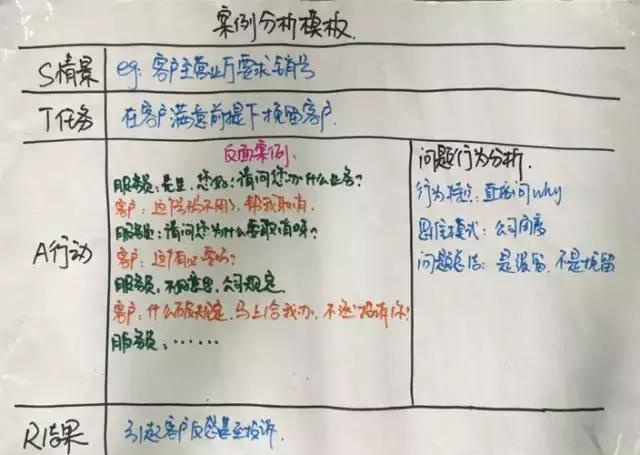 案例分析模板
S情景
eg: 客户至营业厅要求销号
T任务
在客户满意前提下挽留客户.
A行动
反面案例.
服务员:先生,您好:请问您办什么业务?
客户:这号码不用了,帮我取消.
服务员:请问您为什么要取消呀?
客户:这有必要吗?
服务员:不好意思,公司规定.
客户:什么破规定,马上给我办,不然投诉你!
服务员:……
问题行为分析.
行为特点:直接问why
思维模式:公司制度
问题总结:是没留,不是挽留
R结果
引起客户反感甚至投诉.